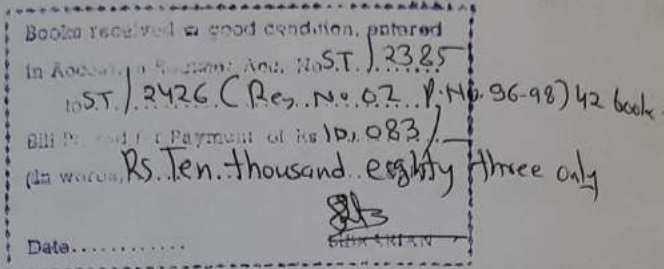 Books received in good condition, entered
in Accession Register Acc. No S.T. / 2385
to S.T. / 2426 (Reg. No. 02 P. No. 96-98) 42 books
Bill Passed for Payment of Rs 10,083/-
(In words, Rs. Ten thousand eighty three only
LIBRARIAN
Date............